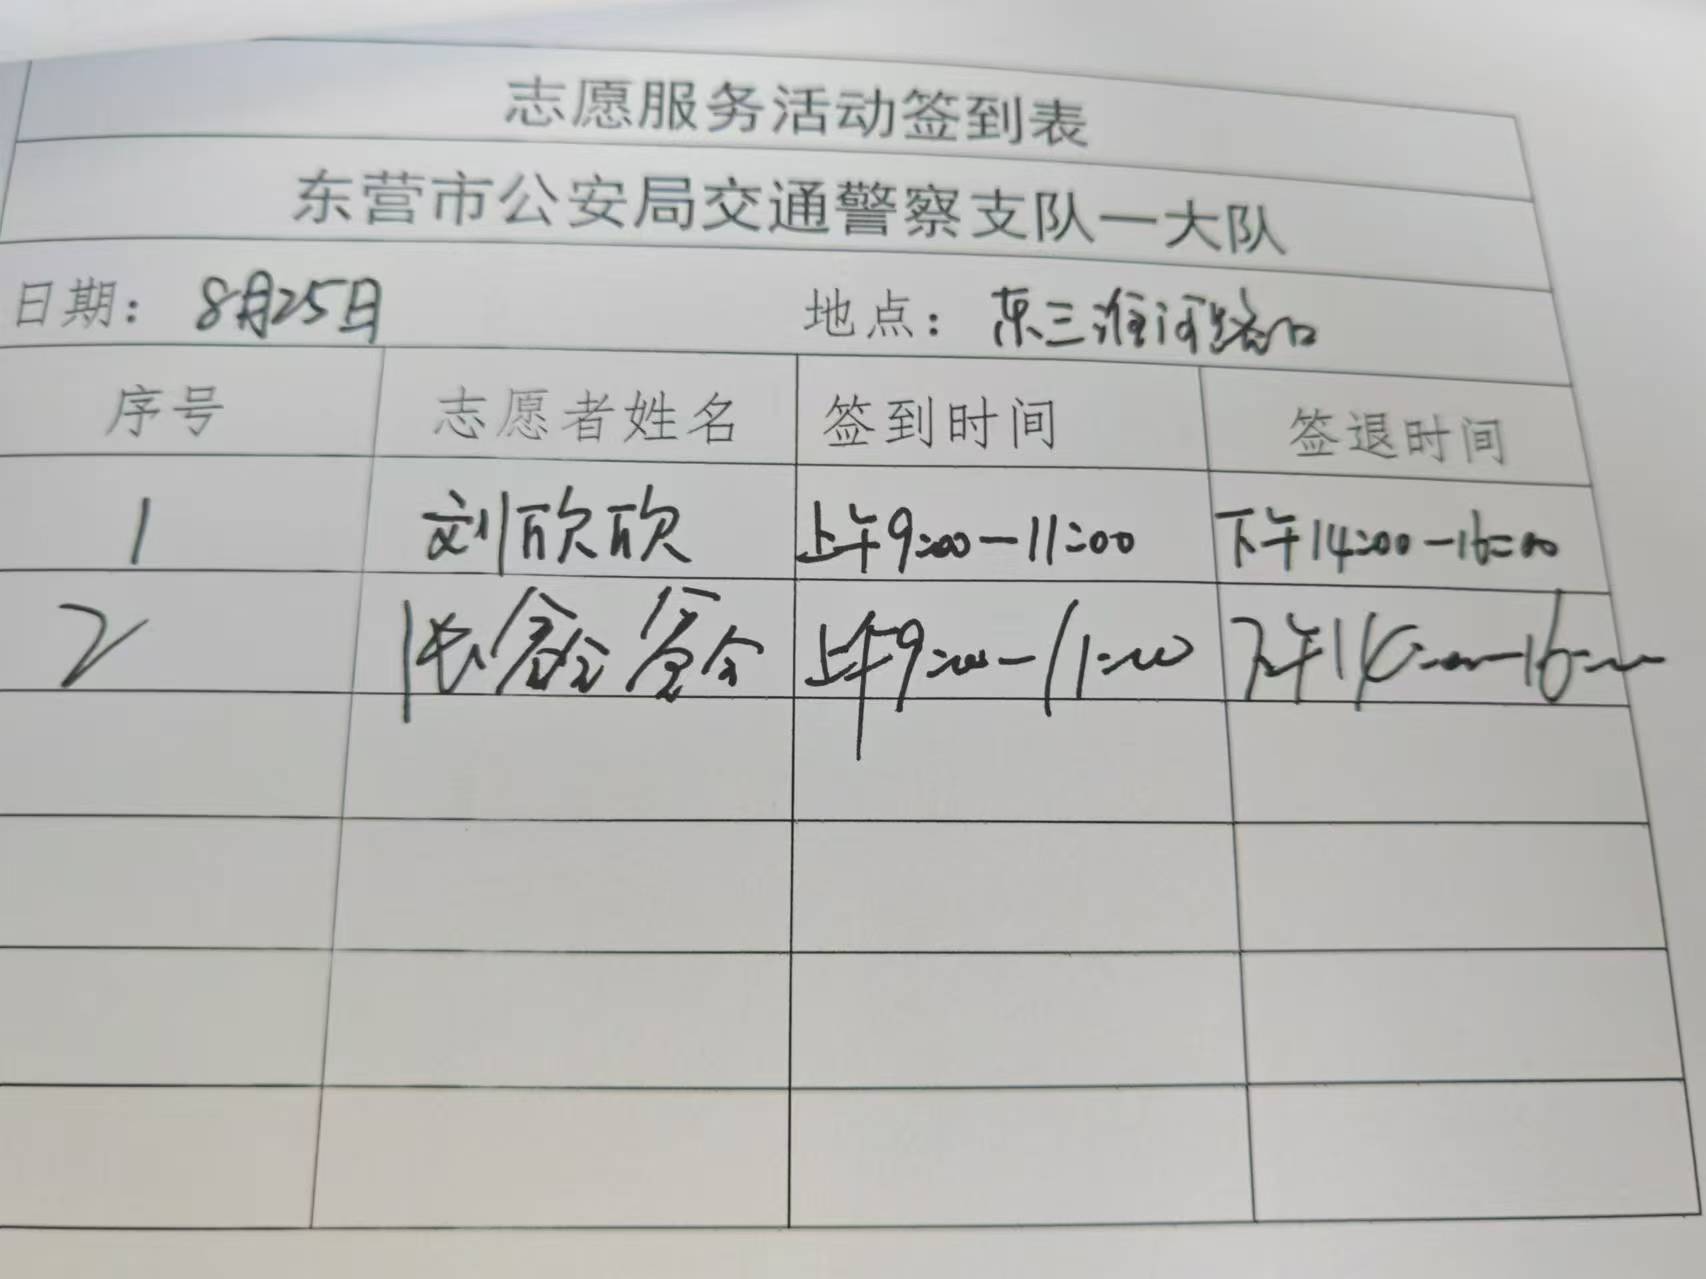 志愿服务活动签到表
东营市公安局交通警察支队一大队
日期：8月25日 地点：东三淮河路口
序号 志愿者姓名 签到时间 签退时间
1 刘欣欣 上午9:00-11:00 下午14:00-16:00
2 张鑫鑫 上午9:00-11:00 下午14:00-16:00